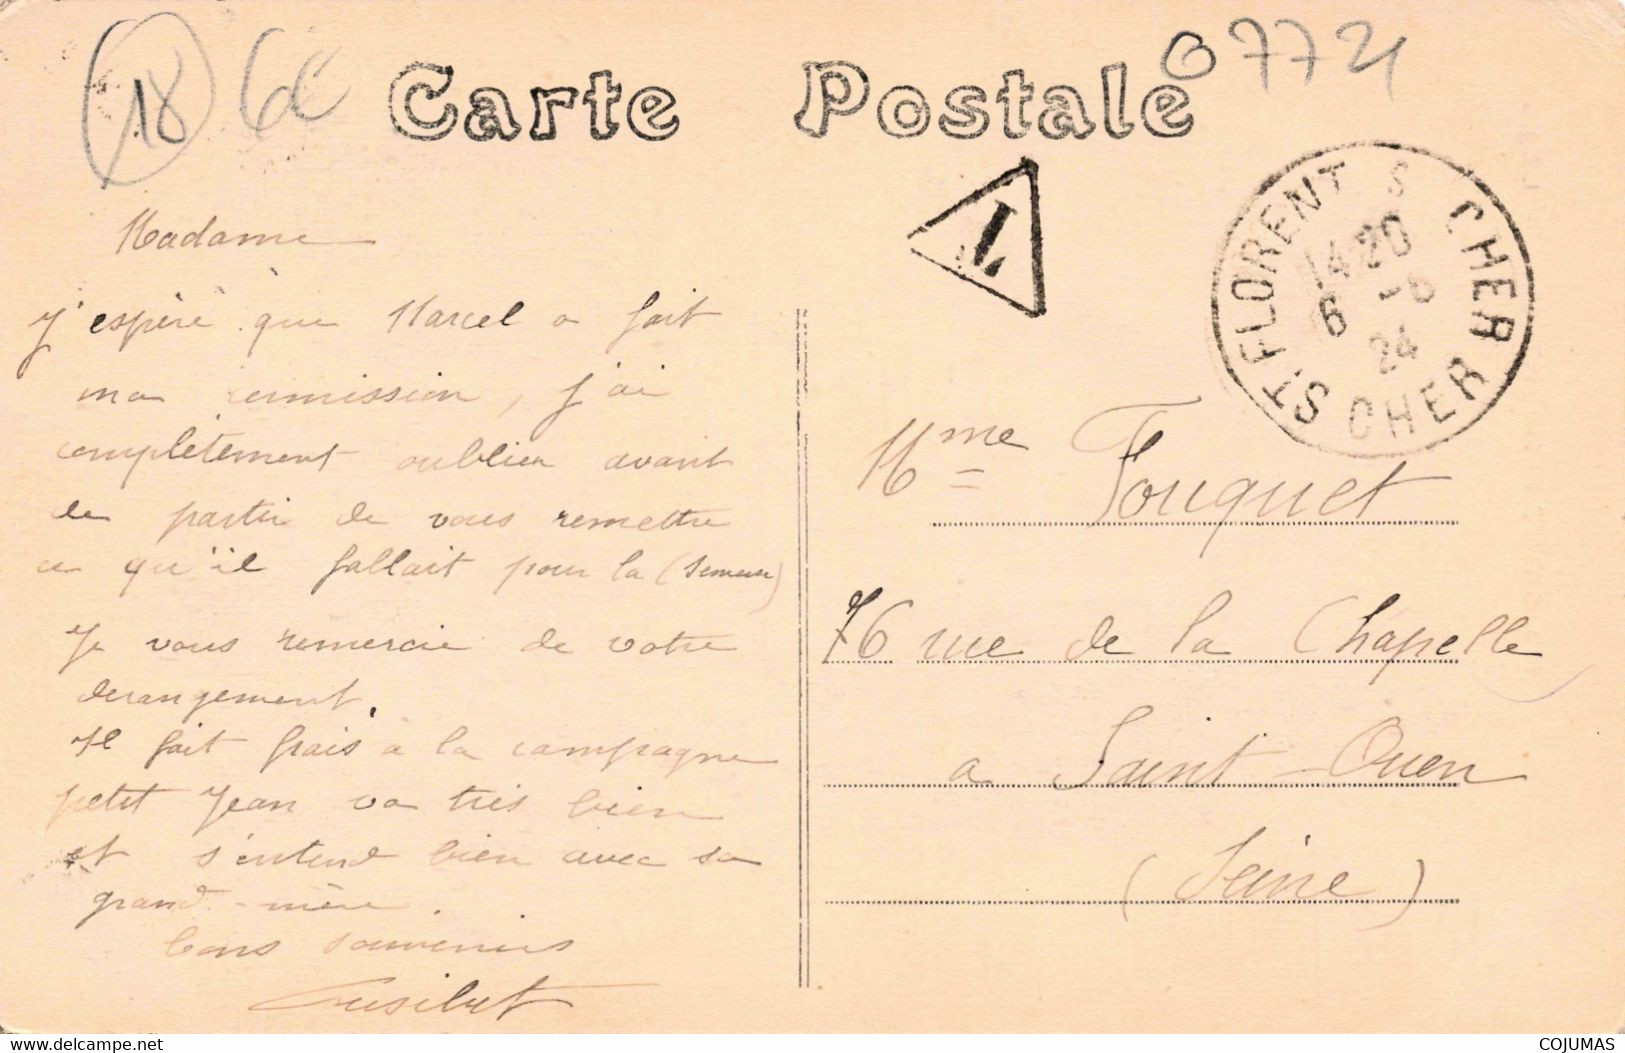 18 6€ Carte Postale 07721
T
ST FLORENT S CHER
CHER
14 20
6 -6
24
Madame
J'espère que Marcel a fait
ma commission, j'ai
complètement oublier avant
de partir de vous remettre
ce qu'il fallait pour la (semeuse)
Je vous remercie de votre
derangement.
Il fait frais à la campagne
petit Jean va très bien
et s'entend bien avec sa
grand-mère.
bons souvenirs
Mme Fouquet
76 rue de la Chapelle
a Saint-Ouen
(Seine)
COJUMAS